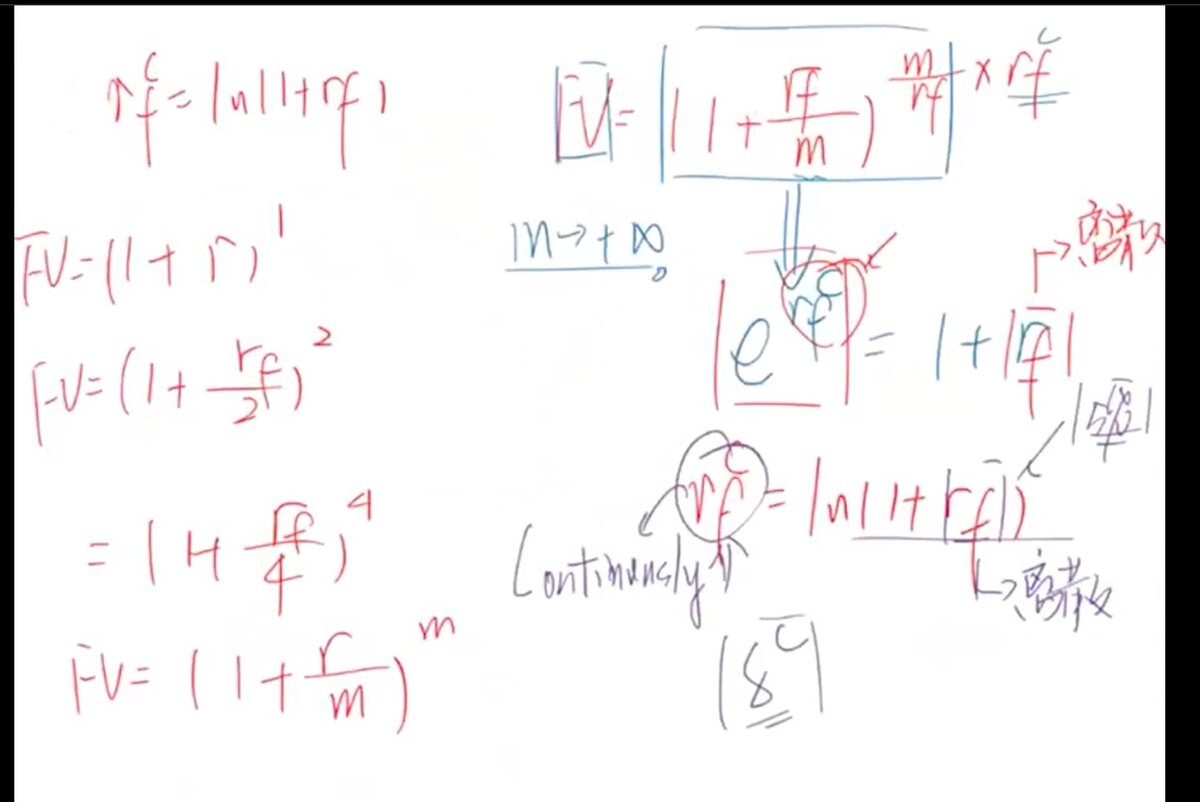 r_f^c = ln(1+rf)
FV=(1+r)^1
FV=(1+rf/2)^2
=(1+rf/4)^4
FV=(1+r/m)^m
FV=(1+rf/m)^(m/rf) × rf^c
m→+∞
e^(rf^c) = 1+rf
→离散
rf^c = ln(1+rf)
Continuously
→离散
δ^c